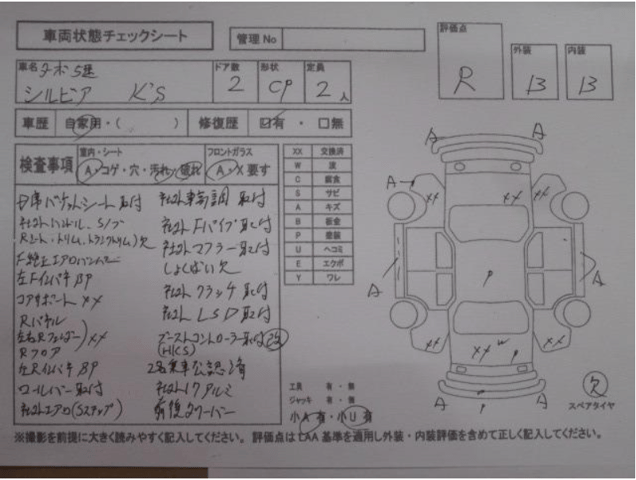 車両状態チェックシート
管理No
評価点
R
外装
B
内装
B
車名
ターボ 5速
シルビア K'S
ドア数
2
形状
CP
定員
2人
車歴 自家用・( ) 修復歴 有・無
検査事項
室内・シート
A・コゲ・穴・汚れ・破れ
フロントガラス
A・X要す
XX 交換済
W 波
C 腐食
S サビ
A キズ
B 板金
P 塗装
U ヘコミ
E エクボ
Y ワレ
D席バケットシート取付
社外車高調取付
社外ハンドル、S/ブ
社外Fパイプ取付
Rシート・トリム、トランクトリム欠
社外マフラー取付
しょくばい欠
左FインパネBP
社外クラッチ取付
コアサポートXX
社外LSD取付
Rパネル
ブーストコントローラー取付
(HKS)
左右Rフェンダー XX
Rフロア
2名乗車公認済
左RインパネBP
社外17アルミ
ロールバー取付
前後タワーバー
社外エアロ(Sステップ)
A
A
A
XX
XX
XX
P
A
A
XX
XX
W
P
XX
A
P
工具 有・無
ジャッキ 有・無
小A有・小U有
欠
スペアタイヤ
※撮影を前提に大きく読みやすく記入してください。 評価点はLAA基準を適用し外装・内装評価を含めて正しく記入してください。